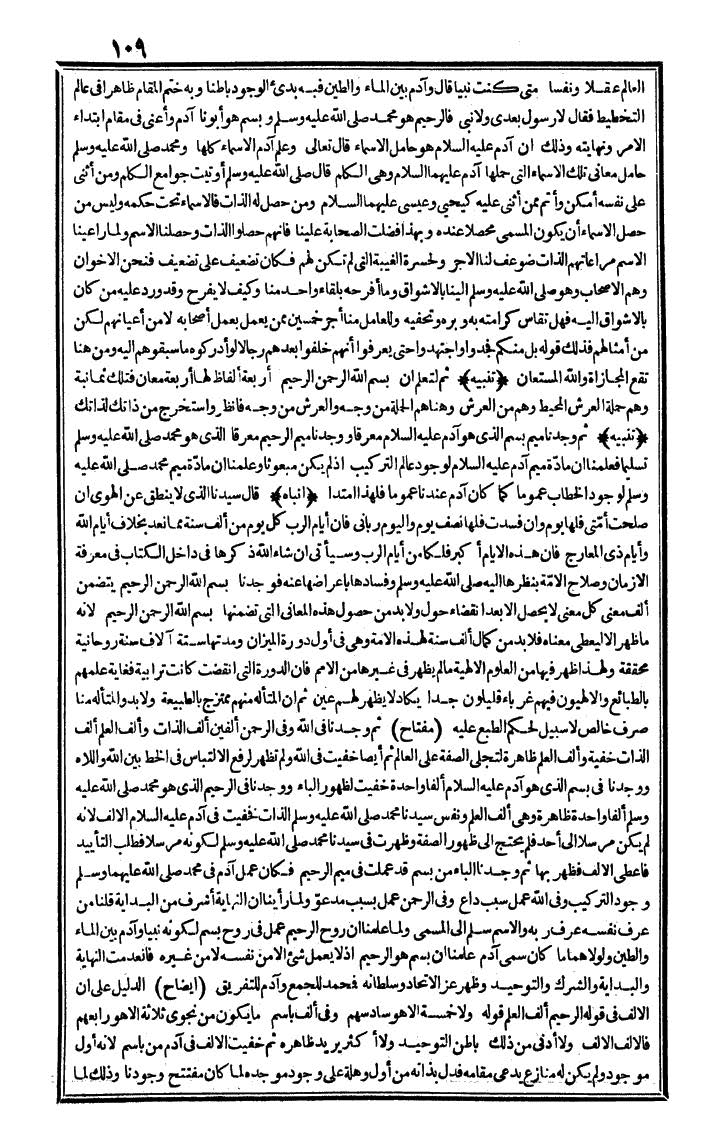 ١٠٩
العالم عقلا ونفسا متى كنت نبيا قال وآدم بين الماء والطين فبه بدئ الوجود باطنا وبه ختم المقام ظاهرا فى عالم
التخطيط فقال لا رسول بعدى ولا نبى فالرحيم هو محمد صلى الله عليه وسلم و بسم هو أبونا آدم وأعنى فى مقام ابتداء
الامر ونهايته وذلك ان آدم عليه السلام هو حامل الاسماء قال تعالى وعلم آدم الاسماء كلها ومحمد صلى الله عليه وسلم
حامل معانى تلك الاسماء التى حملها آدم عليهما السلام وهى الكلم قال صلى الله عليه وسلم أوتيت جوامع الكلم ومن أثنى
على نفسه أمكن وأتم ممن أثنى عليه كيحيى وعيسى عليهما السلام ومن حصل له الذات فالاسماء تحت حكمه وليس من
حصل الاسماء أن يكون المسمى محصلا عنده وبهذا فضلت الصحابة علينا فانهم حصلوا الذات وحصلنا الاسم ولما راعينا
الاسم مراعاتهم الذات ضوعف لنا الاجر ولحسرة الغيبة التى لم تكن لهم فكان تضعيف على تضعيف فنحن الاخوان
وهم الاصحاب وهو صلى الله عليه وسلم الينا بالاشواق وما أفرحه بلقاء واحد منا وكيف لا يفرح وقد ورد عليه من كان
بالاشواق اليه فهل تقاس كرامته به وبره وتحفيه وللعامل منا أجر خمسين ممن يعمل بعمل أصحابه لا من أعيانهم لكن
من أمثالهم فذلك قوله بل منكم فجدوا واجتهدوا حتى يعرفوا أنهم خلفوا بعدهم رجالا لو أدركوه ما سبقوهم اليه ومن هنا
تقع المجازاة والله المستعان ﴿تنبيه﴾ ثم لتعلم ان بسم الله الرحمن الرحيم أربعة ألفاظ لها أربعة معان فتلك ثمانية
وهم حملة العرش المحيط وهم من العرش وهنا هم الحملة من وجه والعرش من وجه فانظر واستخرج من ذاتك لذاتك
﴿تنبيه﴾ ثم وجدنا ميم بسم الذى هو آدم عليه السلام معرقا ووجدنا ميم الرحيم معرقا الذى هو محمد صلى الله عليه وسلم
تسليما فعلمنا ان مادّة ميم آدم عليه السلام لوجود عالم التركيب اذ لم يكن مبعوثا وعلمنا ان مادّة ميم محمد صلى الله عليه
وسلم لوجود الخطاب عموما كما كان آدم عندنا عموما فلهذا امتدا ﴿انباه﴾ قال سيدنا الذى لا ينطق عن الهوى ان
صلحت أمّتى فلها يوم وان فسدت فلها نصف يوم واليوم ربانى فان أيام الرب كل يوم من ألف سنة مما نعد بخلاف أيام الله
وأيام ذى المعارج فان هذه الايام أكبر فلكا من أيام الرب وسيأتى ان شاء الله ذكرها فى داخل الكتاب فى معرفة
الازمان وصلاح الامّة بنظرها اليه صلى الله عليه وسلم وفسادها باعراضها عنه فوجدنا بسم الله الرحمن الرحيم يتضمن
ألف معنى كل معنى لا يحصل الا بعد انقضاء حول ولا بد من حصول هذه المعانى التى تضمنها بسم الله الرحمن الرحيم لانه
ما ظهر الا ليعطى معناه فلا بد من كمال ألف سنة لهذه الامة وهى فى أول دورة الميزان ومدتها ستة آلاف سنة روحانية
محققة ولهذا ظهر فيها من العلوم الالهية ما لم يظهر فى غيرها من الامم فان الدورة التى انقضت كانت ترابية فغاية علمهم
بالطبائع والالهيون فيهم غرباء قليلون جدا يكاد لا يظهر لهم عين ثم ان المتأله منهم ممتزج بالطبيعة ولا بد والمتأله منا
صرف خالص لا سبيل لحكم الطبع عليه (مفتاح) ثم وجدنا فى الله وفى الرحمن ألفين ألف الذات وألف العلم ألف
الذات خفية وألف العلم ظاهرة لتجلى الصفة على العالم ثم أيضا خفيت فى الله ولم تظهر لرفع الالتباس فى الخط بين الله واللاه
ووجدنا فى بسم الذى هو آدم عليه السلام ألفا واحدة خفيت لظهور الباء ووجدنا فى الرحيم الذى هو محمد صلى الله عليه
وسلم ألفا واحدة ظاهرة وهى ألف العلم ونفس سيدنا محمد صلى الله عليه وسلم الذات فخفيت فى آدم عليه السلام الالف لانه
لم يكن مرسلا الى أحد فلم يحتج الى ظهور الصفة وظهرت فى سيدنا محمد صلى الله عليه وسلم لكونه مرسلا فطلب التأييد
فاعطى الالف فظهر بها ثم وجدنا الباء من بسم قد عملت فى ميم الرحيم فكان عمل آدم فى محمد صلى الله عليهما وسلم
وجود التركيب وفى الله عمل سبب داع وفى الرحمن عمل بسبب مدعوّ ولما رأينا ان النهاية أشرف من البداية قلنا من
عرف نفسه عرف ربه والاسم سلم الى المسمى ولما علمنا ان روح الرحيم عمل فى روح بسم لكونه نبيا وآدم بين الماء
والطين ولولا هما ما كان سمى آدم علمنا ان بسم هو الرحيم اذ لا يعمل شئ الا من نفسه لا من غيره فانعدمت النهاية
والبداية والشرك والتوحيد وظهر عز الاتحاد وسلطانه فمحمد للجمع وآدم للتفريق (ايضاح) الدليل على ان
الالف فى قوله الرحيم ألف العلم قوله ولا خمسة الا هو سادسهم وفى ألف باسم ما يكون من نجوى ثلاثة الا هو رابعهم
فالالف الالف ولا أدنى من ذلك باطن التوحيد ولا أكثر يريد ظاهره ثم خفيت الالف فى آدم من باسم لانه أول
موجود ولم يكن له منازع يدعى مقامه فدل بذاته من أول وهلة على وجود موجده لما كان مفتتح وجودنا وذلك لما